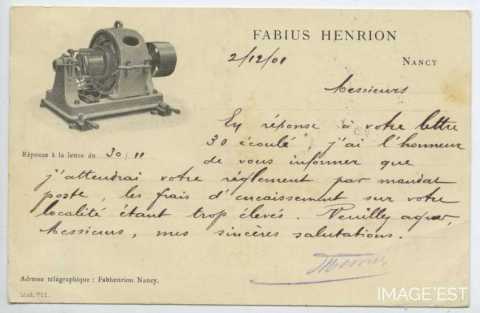 FABIUS HENRION
NANCY
2/12/01
Messieurs
En réponse à votre lettre
Réponse à la lettre du 30/11
30 écoulé, j'ai l'honneur
de vous informer que
j'attendrai votre règlement par mandat
poste, les frais d'encaissement sur votre
localité étant trop élevés. Veuillez agréer,
Messieurs, mes sincères salutations.
Adresse télégraphique : Fabhenrion Nancy.
IMAGE'EST